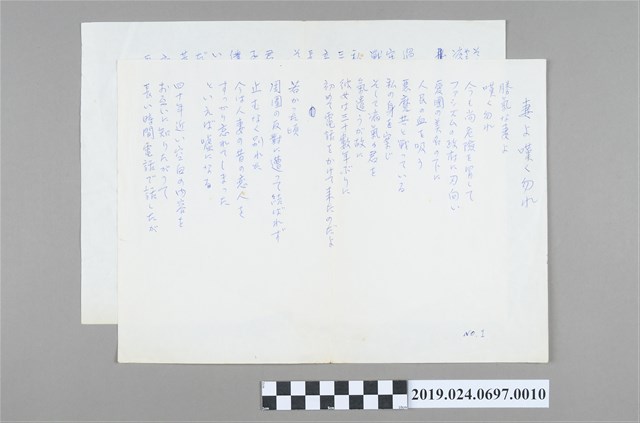 妻よ嘆く勿れ
勝気な妻よ
嘆く勿れ
今も尚危険を冒して
ファシズムの政府に刃向い
愛国の美名の下に
人民の血を吸う
悪魔共と戦っている
私の身を案じ
そして病気の君を
気遣うが故に
彼女は三十数年ぶりに
初めて電話をかけて来たのだよ
若かった頃
周囲の反対に遭って結ばれず
止むなく別れた
今は人妻の昔の恋人を
すっかり忘れてしまった
といえば嘘になる
四十年近い空白の内容を
お互いに知りたがって
長い時間電話で話したが
No.1
2019.024.0697.0010